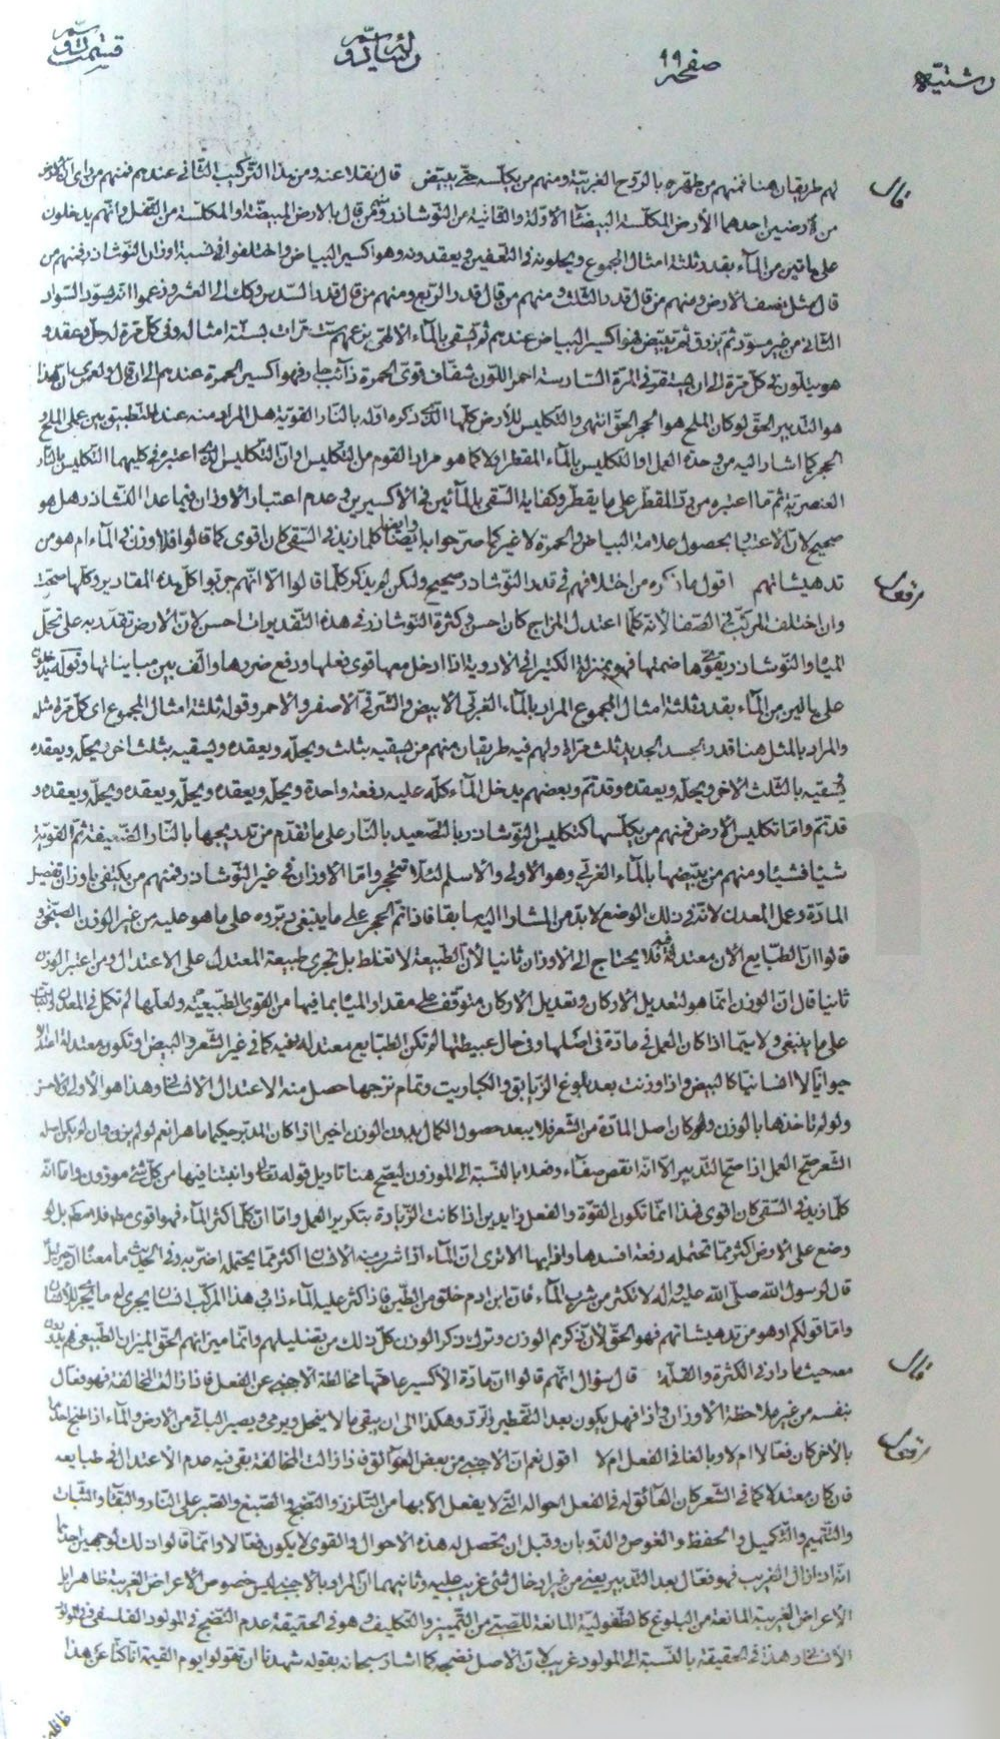 رشتیه صفحه ٩٩ رساله دوم قسمت دوم
قال لهم طريقان هنا فمنهم من طهره بالروح الغربية ومنهم من يكلسه حتى يبيض قال نقلا عنه ومن هذا التركيب الثاني عندهم فمنهم من رأى
من أرضين احدهما الأرض المكلسة البيضاء الأولة والثانية من النوشادر ومن قال بالارض المبيضة او المكلسة من الثفل وانهم يدخلون
على مائين من الماء بقدر ثلثة امثال المجموع ويحلونه في التعفين ويعقدونه وهو اكسير البياض واختلفوا في نسبة اوزان النوشادر فمنهم من
قال مثل نصف الارض ومنهم من قال قدر الثلث ومنهم من قال قدر الربع ومنهم من قال قدر السدس وكك الى العشر وزعموا انه يسود السواد
الثاني من غير مسود ثم يزرق ثم يبيض فهو اكسير البياض عندهم ثم يسقى بالماء الالهي بزعمهم ست مرات بستة امثاله وفي كل مرة له حل وعقد و
هو يتلون في كل مرة الى ان يستقر في المرة السادسة احمر اللون شفاف قوى الحمرة ذائب جار فهو اكسير الحمرة عندهم الى ان قال ولعمري ان هذا
هو التدبير الحق لو كان الملح هو الحجر الحق انتهى والتكليس للأرض كلها الذي ذكره اوله بالنار القوية هل المراد منه عند التطبيق بين عملى الملح و
الحجر كما اشار اليه من وحدة العمل او التكليس بالماء المقطر اولا كما هو مراد القوم من التكليس او ان التكليس الذي اعتبره في كليهما التكليس بالنار
العنصرية ثم ما اعتبره من رد المقطر على ما يقطر وكفاية السقى بالمائين في الاكسيرين وعدم اعتبار الاوزان فيما عدا النشادر هل هو
صحيح لان الاعتبار بحصول علامة البياض والحمرة لا غير كما صرحوا به وايضا كلما زيد في السقى كان اقوى كما قالوا فلا وزن في الماء ام هو من
مرفق تدهيشاتهم اقول ما ذكره من اختلافهم في قدر النوشادر صحيح ولكن لم يذكر كلما قالوا الا انهم جربوا كل هذه المقادير وكلها صحت
وان اختلف المركب في الصفا لأنه كلما اعتدل المزاج كان احسن وكثرة النوشادر في هذه التقديرات احسن لان الأرض تقدر به على تحمل
المياه والنوشادر يقوى هاضمتها فهو بمنزلة الكثيرا في الادوية اذا دخل معها قوى فعلها ودفع ضررها والف بين متبايناتها وقوله يدخلون
على مائين من الماء بقدر ثلثة امثال المجموع المراد بالماء الغربي الابيض والشرقي الاصفر والاحمر وقوله ثلثة امثال المجموع اى كل مرة مثله
والمراد بالمثل هنا قدر الجسد الجديد ثلث مرات ولهم فيه طريقان منهم من يسقيه بثلث ويحله ويعقده ويسقيه بثلث اخر ويحله ويعقده
ويسقيه بالثلث الآخر ويحله ويعقده وقد تم وبعضهم يدخل الماء كله عليه دفعة واحدة ويحله ويعقده ويحله ويعقده ويحله ويعقده و
قد تم واما تكليس الارض فمنهم من يكلسها كتكليس النوشادر بالتصعيد بالنار على ما تقدم من تدريجها بالنار الضعيفة ثم القوية
شيئا فشيئا ومنهم من يبيضها بالماء الغربي وهو الاولى والاسلم لئلا تتحجر واما الاوزان في غير النوشادر فمنهم من يكتفى باوزان تفصيل
المادة وعمل المعدن لانه في ذلك الوضع لا بد من المشار اليها بقا فاذا تم الحجر على ما ينبغى دبروه على ما هو عليه من غير الوزن الصنجى و
قالوا ان الطبايع الأن معتدلة فلا يحتاج الى الاوزان ثانيا لأن الطبيعة لا تغلط بل تجرى طبيعة المعتدل على الاعتدال ومن اعتبر الوزن
ثانيا قال ان الوزن انما هو لتعديل الاركان وتعديل الاركان متوقف على مقدار المياه بما فيها من القوى الطبيعية ولعلها لم تكمل في المعدن
على ما ينبغى ولا سيما اذا كان العمل في مادة في اصلها وفي حال عبيطتها لم تكن الطبايع معتدلة فيه كما في غير الشعر والبيض وتكون معتدلة
حيوانيا لا انسانيا كالبيض واذا وزنت بعد بلوغ الزيابق والكباريت وتمام نزجها حصل منه الاعتدال الانساني وهذا هو الأولى
ولو لم تأخذها بالوزن ولو كان اصل المادة من الشعر فلا يبعد حصول الكمال بدون الوزن اخيرا اذا كان المدبر حكيما ماهرا نعم لو لم يزن وان لم يكن اصله
الشعر صح العمل اذا صح التدبير الا انه انقص صفاء وفعلا بالنسبة الى الموزون ليصح هنا تاويل قوله تعالى وانبتنا فيها من كل شئ موزون واما انه
كلما زيد في السقى كان اقوى فهذا انما تكون القوة والفعل زايدين اذا كانت الزيادة بتكرير العمل واما ان كلما كثر الماء فهو اقوى مطلقا فلا بل لو
وضع على الارض اكثر مما تحتمله دفعة افسدها واذابها الا ترى ان الماء اذا شرب منه الانسان اكثر مما يحتمله اضر به وفي الحديث ما معناه ان جبرئيل
قال لرسول الله صلى الله عليه واله لا تكثر من شرب الماء فان ابن ادم خلق من الطين فاذا كثر عليه الماء ذاب وهذا المركب انسان يجرى له ما يجرى للانسان
واما قولكم او هو من تدهيشاتهم فهو الحق لأن ذكرهم الوزن وترك ذكر الوزن كل ذلك من تضليلهم وانما ميزانهم الحق الميزان الطبيعي فهم يدورون
قال معه حيثما دار في الكثرة والقلة قال سؤال انهم قالوا ان مادة الأكسير عاقها مخالطة الاجنبي عن الفعل فاذا زالت المخالفة فهو فعال
بنفسه من غير ملاحظة الاوزان واذا فهل يكون بعد التقطير والرد وهكذا الى ان يبقى ما لا ينحل ويرمى ويصير الباقي من الارض والماء اذا امتزج احدهما
مرفق بالآخر كان فعالا ام لا وبالغا في الفعل ام لا اقول نعم ان الاجنبي من بعض العوائق فاذا زالت المخالفة بقى فيه عدم الاعتدال في طبايعه
فان كان معتدلا كما في الشعر كان العائق له في الفعل احواله التي لا يفعل الا بها من التلزز والنضج والصبغ والصبر على النار والبقاء والثبات
والتتميم والتكميل والحفظ والغوص والذوبان وقبل ان تحصل له هذه الاحوال والقوى لا يكون فعالا وانما قالوا ذلك لوجهين احدهما
انه اذا زال الغريب فهو فعال بعد التدبير يعنى من غير ادخال شئ غريب عليه وثانيهما ان المراد بالاجنبي ليس خصوص الاعراض الغريبة ظاهرا بل
الاعراض الغريبة المانعة من البلوغ كالطفولية المانعة للصبى من التمييز والتكليف وهو في الحقيقة عدم النضج في المولود الفلسفي وفي المولود
الانساني وهذا في الحقيقة بالنسبة الى المولود غريب لان الاصل نضيجه كما اشار سبحانه بقوله شهدنا ان تقولوا يوم القيمة انا كنا عن هذا
غافلين